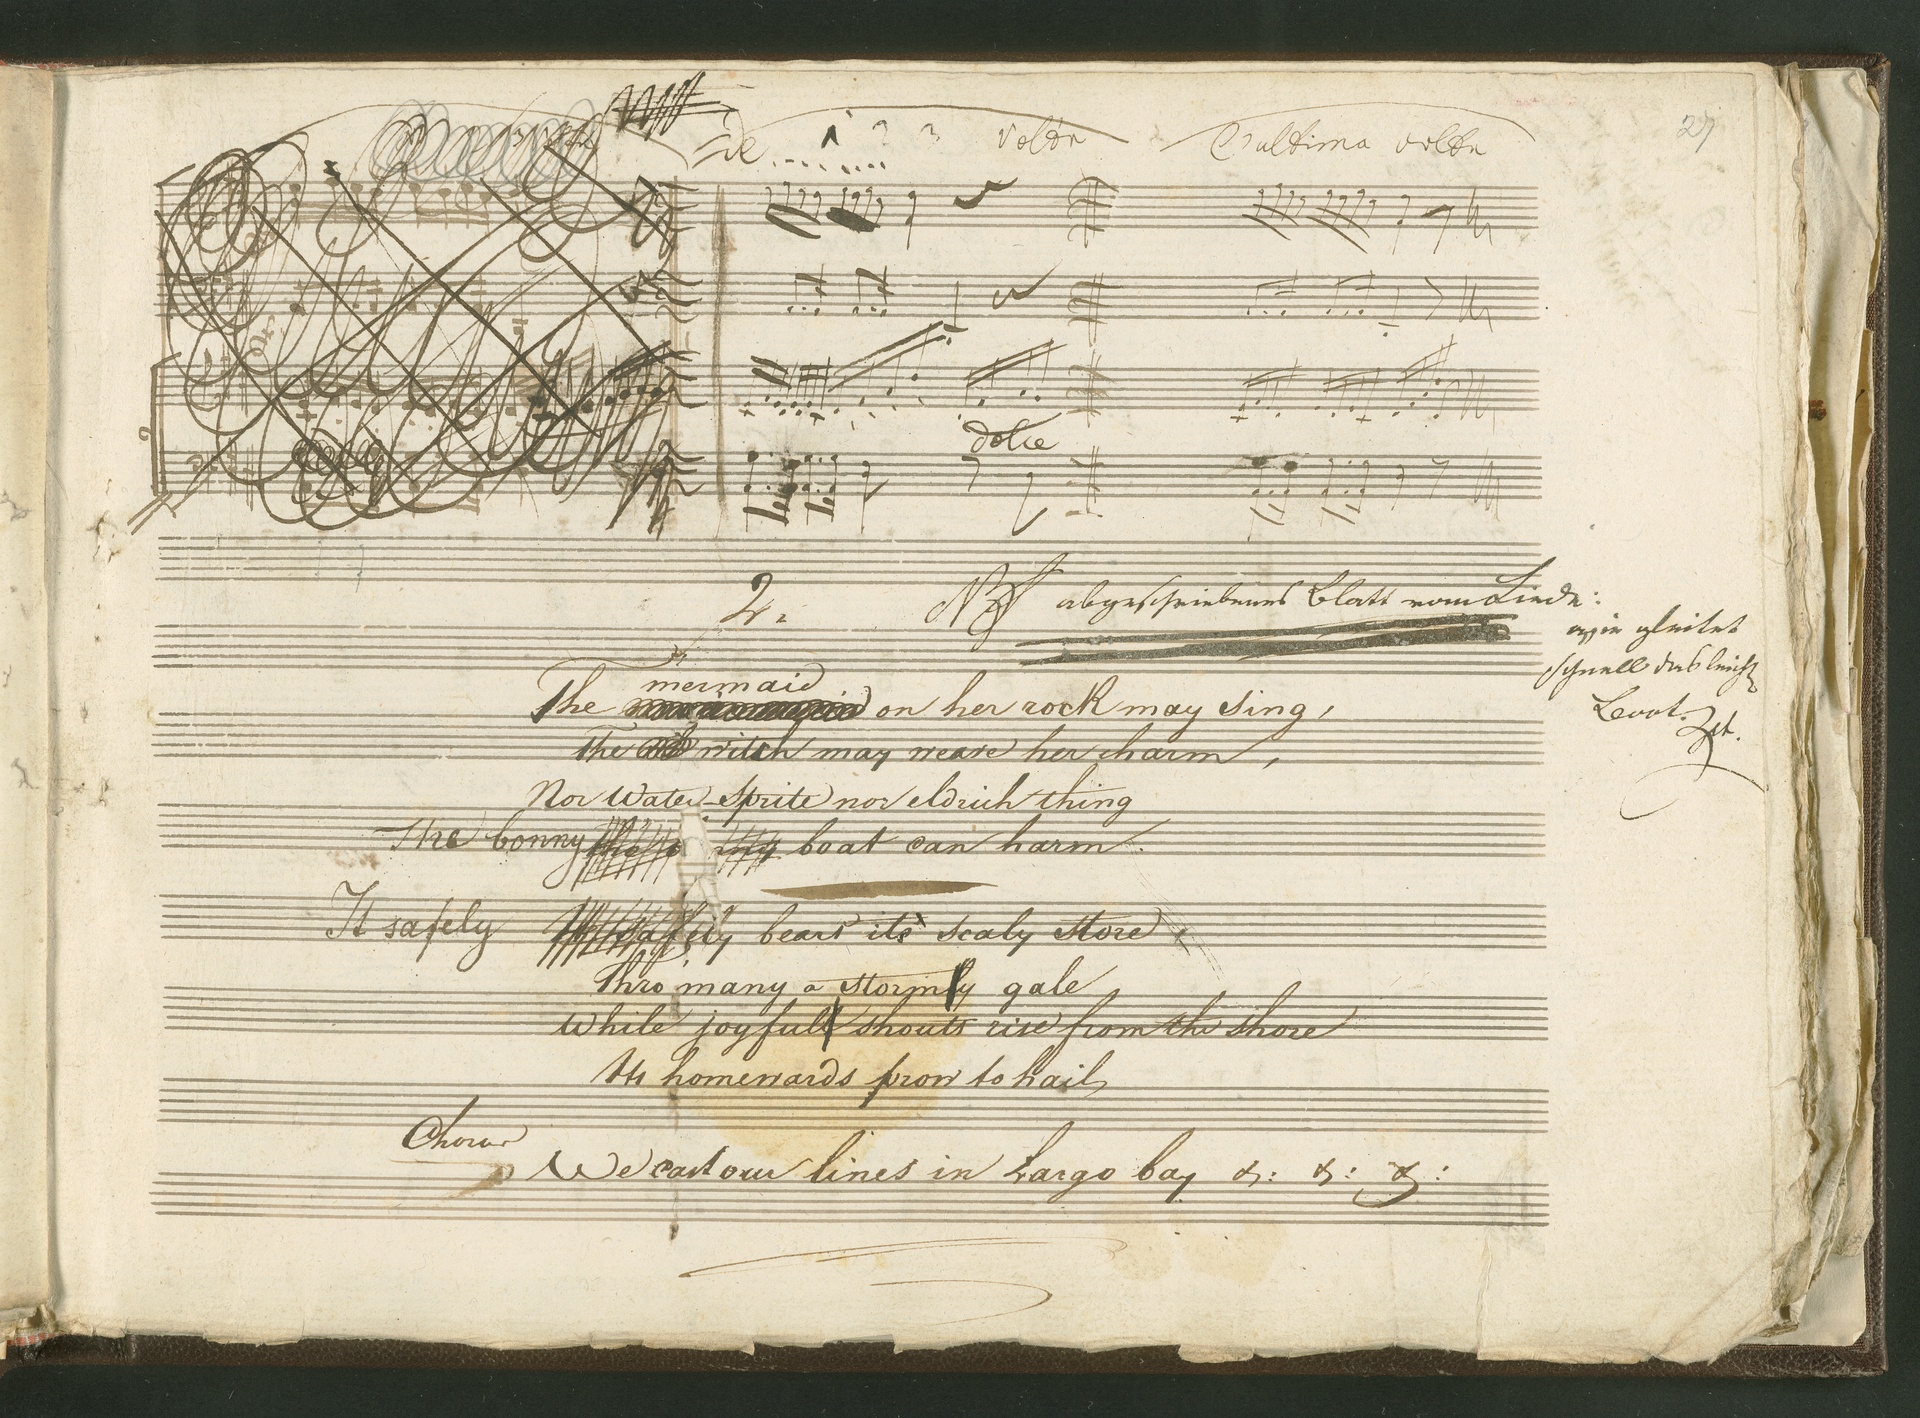 27
de 1 2 3 volta L'ultima volta
dolce
2.
NB abgeschriebenes Blatt vom Liede:
wie gleitet
schnell das leichte
Boot.
The mermaid on her rock may sing,
The witch may weave her charm,
Nor Water-Sprite nor eldrich thing
The bonny boat can harm.
It safely bears its scaly store,
Thro many a stormy gale
While joyful shouts rise from the shore
Its homewards prow to hail,
Chorus
We cast our lines in Largo bay &: &: &: